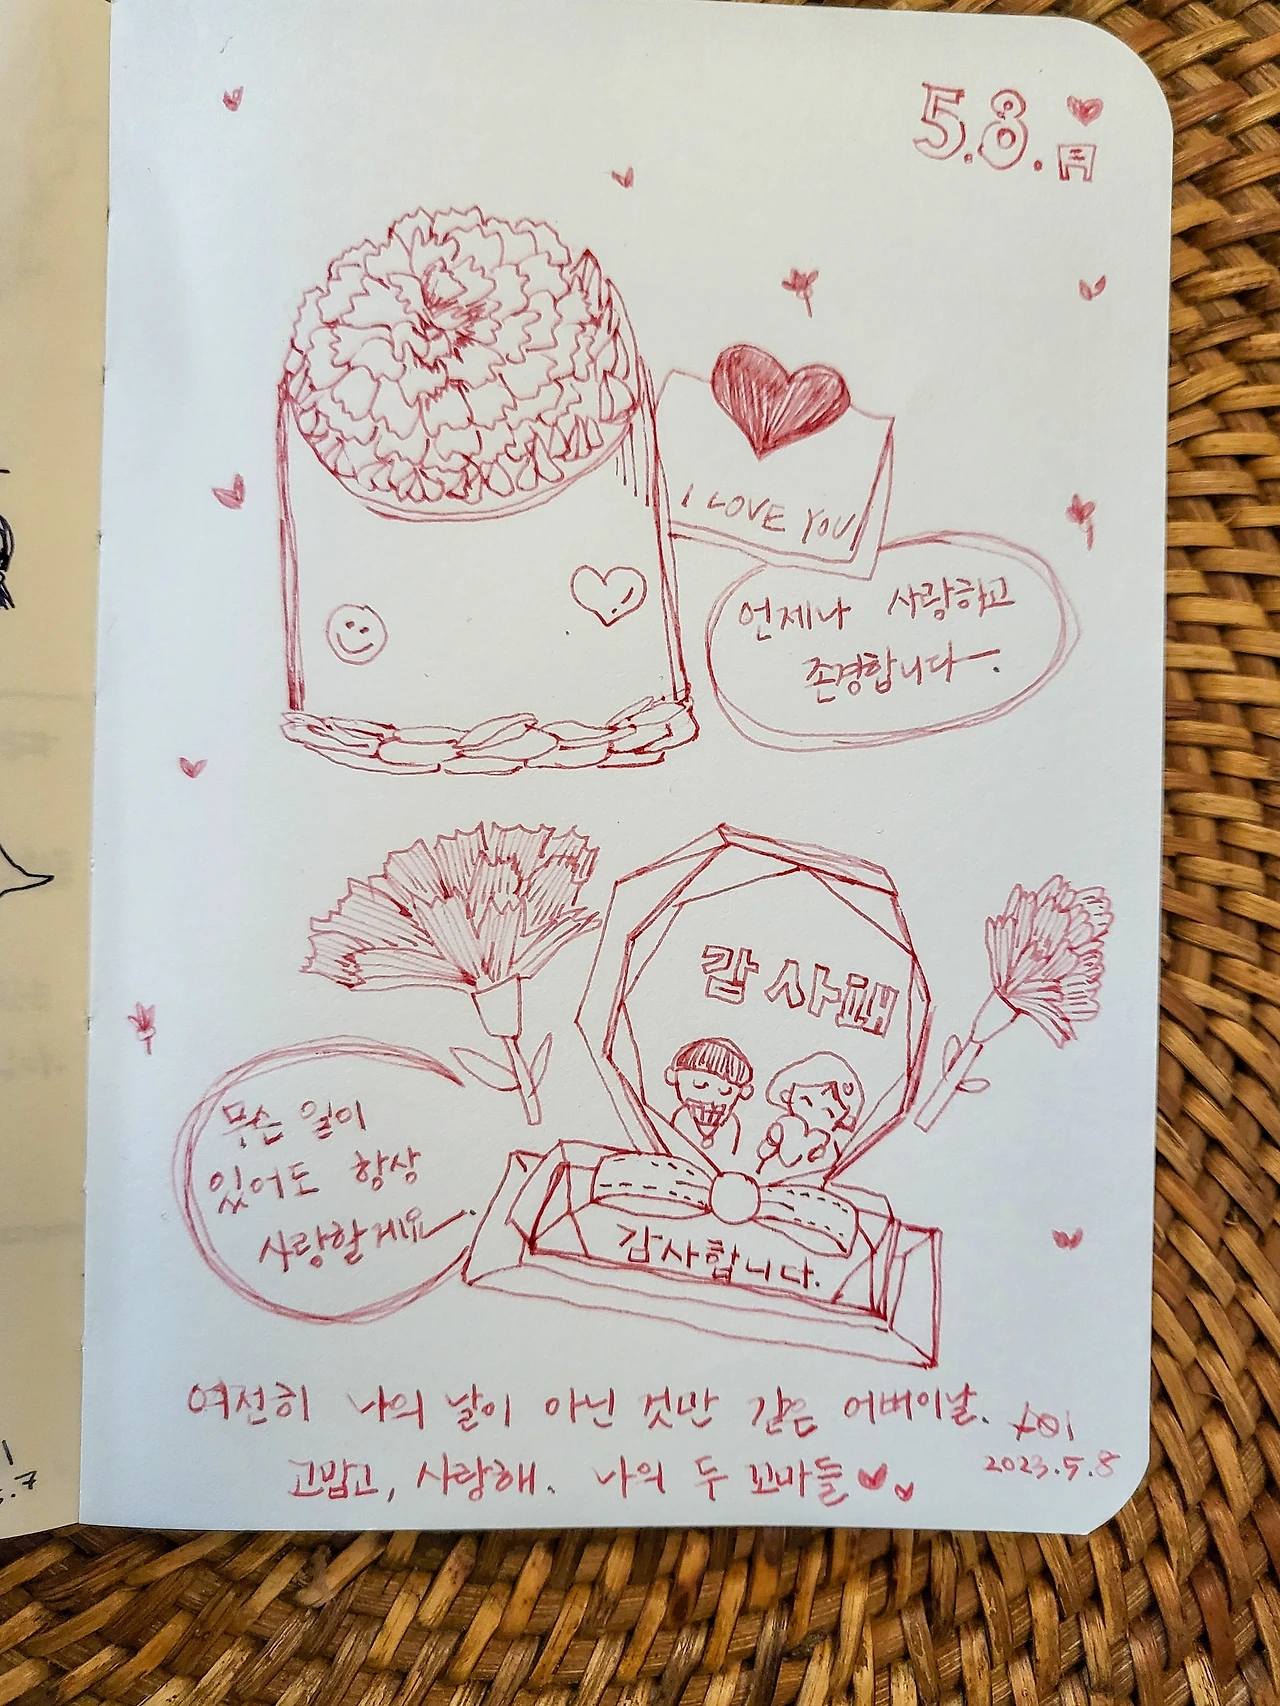 5.8.月
I LOVE YOU
언제나 사랑하고
존경합니다ㅡ.
감사해
무슨 일이
있어도 항상
사랑할게요ㅡ.
감사합니다.
여전히 나의 날이 아닌 것만 같은 어버이날.
고맙고, 사랑해. 나의 두 꼬마들
2023.5.8